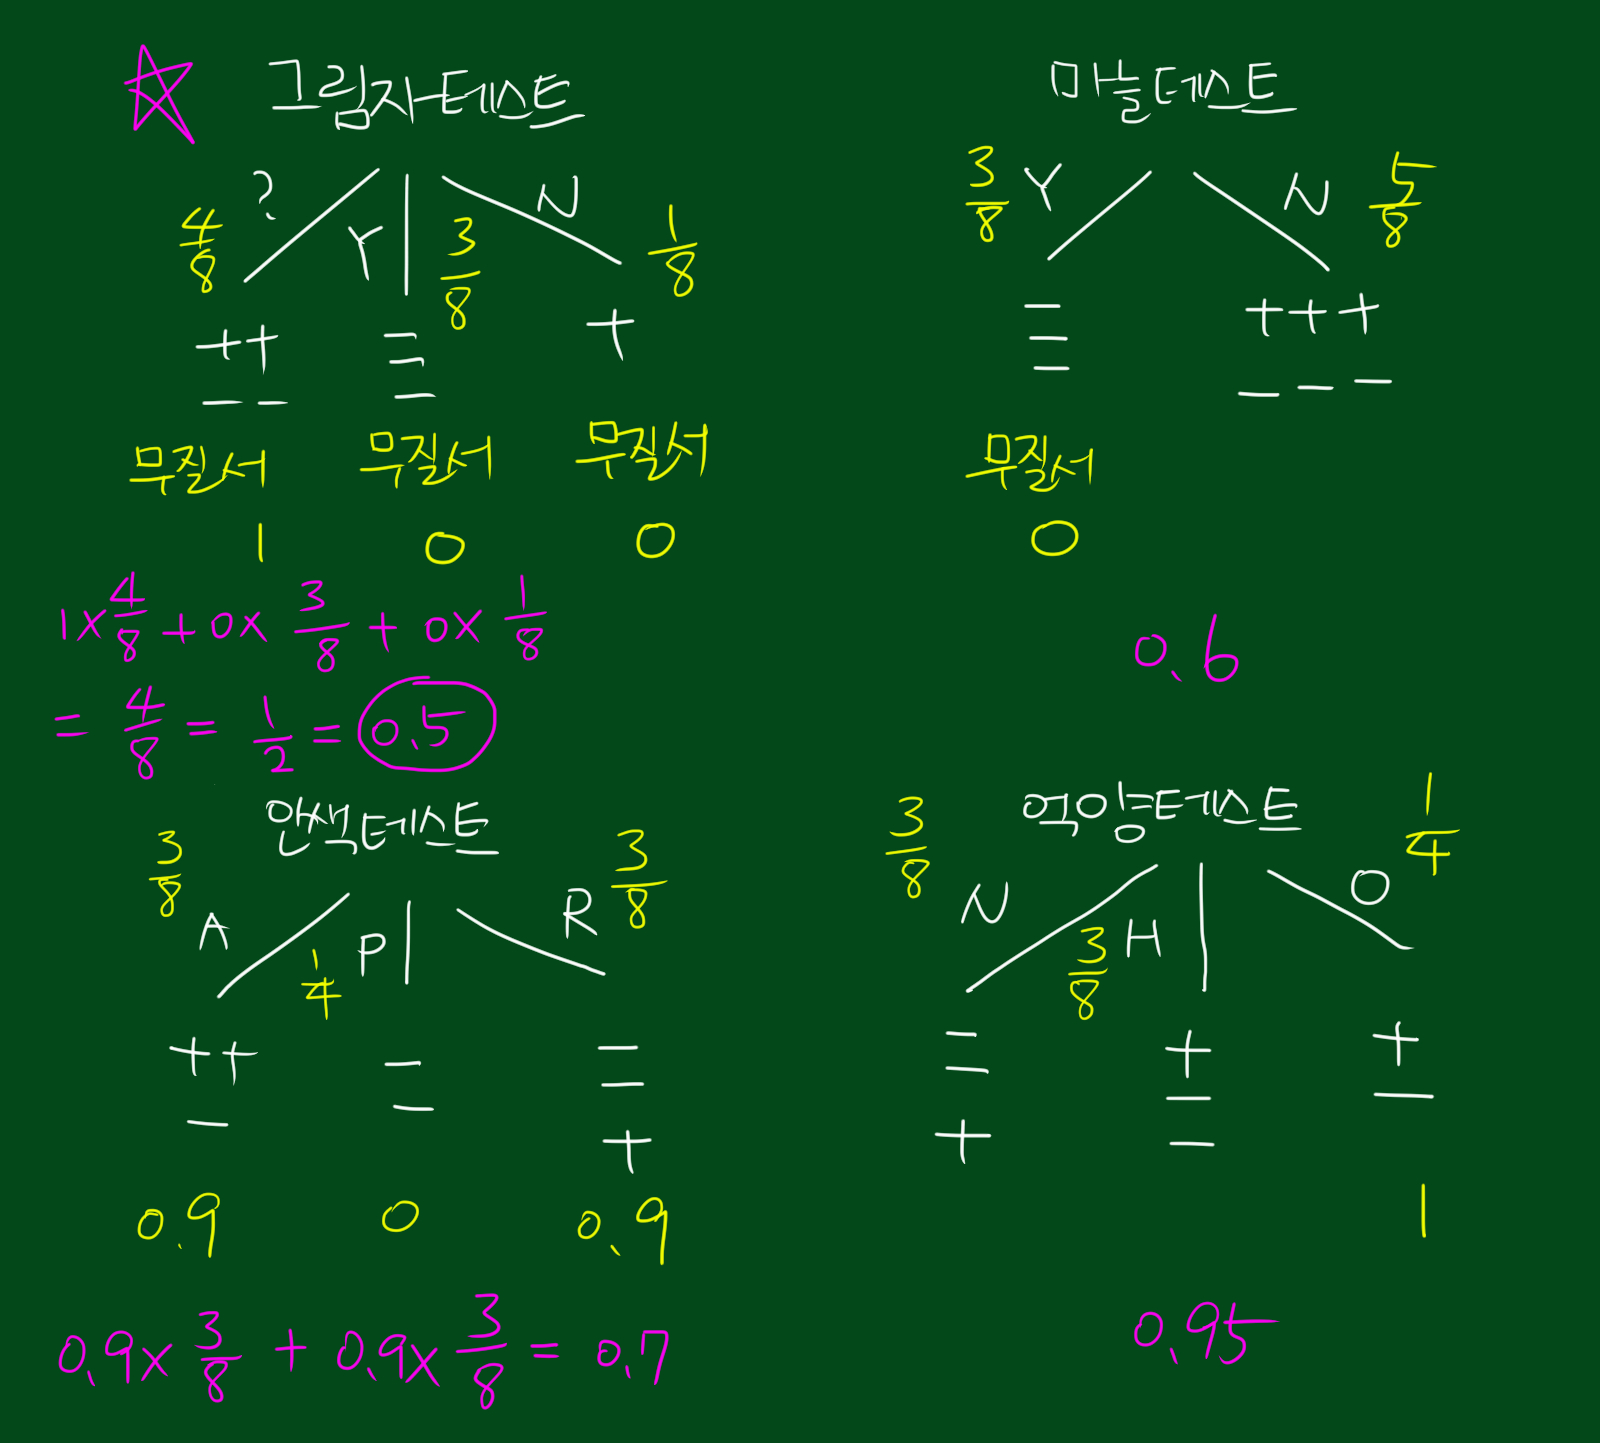 그림자테스트
? Y N
4/8 3/8 1/8
++ - +
-- -
-
무질서 무질서 무질서
1 0 0
1×4/8+0×3/8+0×1/8
=4/8=1/2=0.5
마늘테스트
3/8 Y N 5/8
- +++
- ---
-
무질서
0
0.6
안색테스트
3/8 A 1/4 P R 3/8
++ - -
- - -
+
0.9 0 0.9
0.9×3/8+0.9×3/8=0.7
억양테스트
3/8 N 3/8 H O 1/4
- + +
- - -
+ -
1
0.95